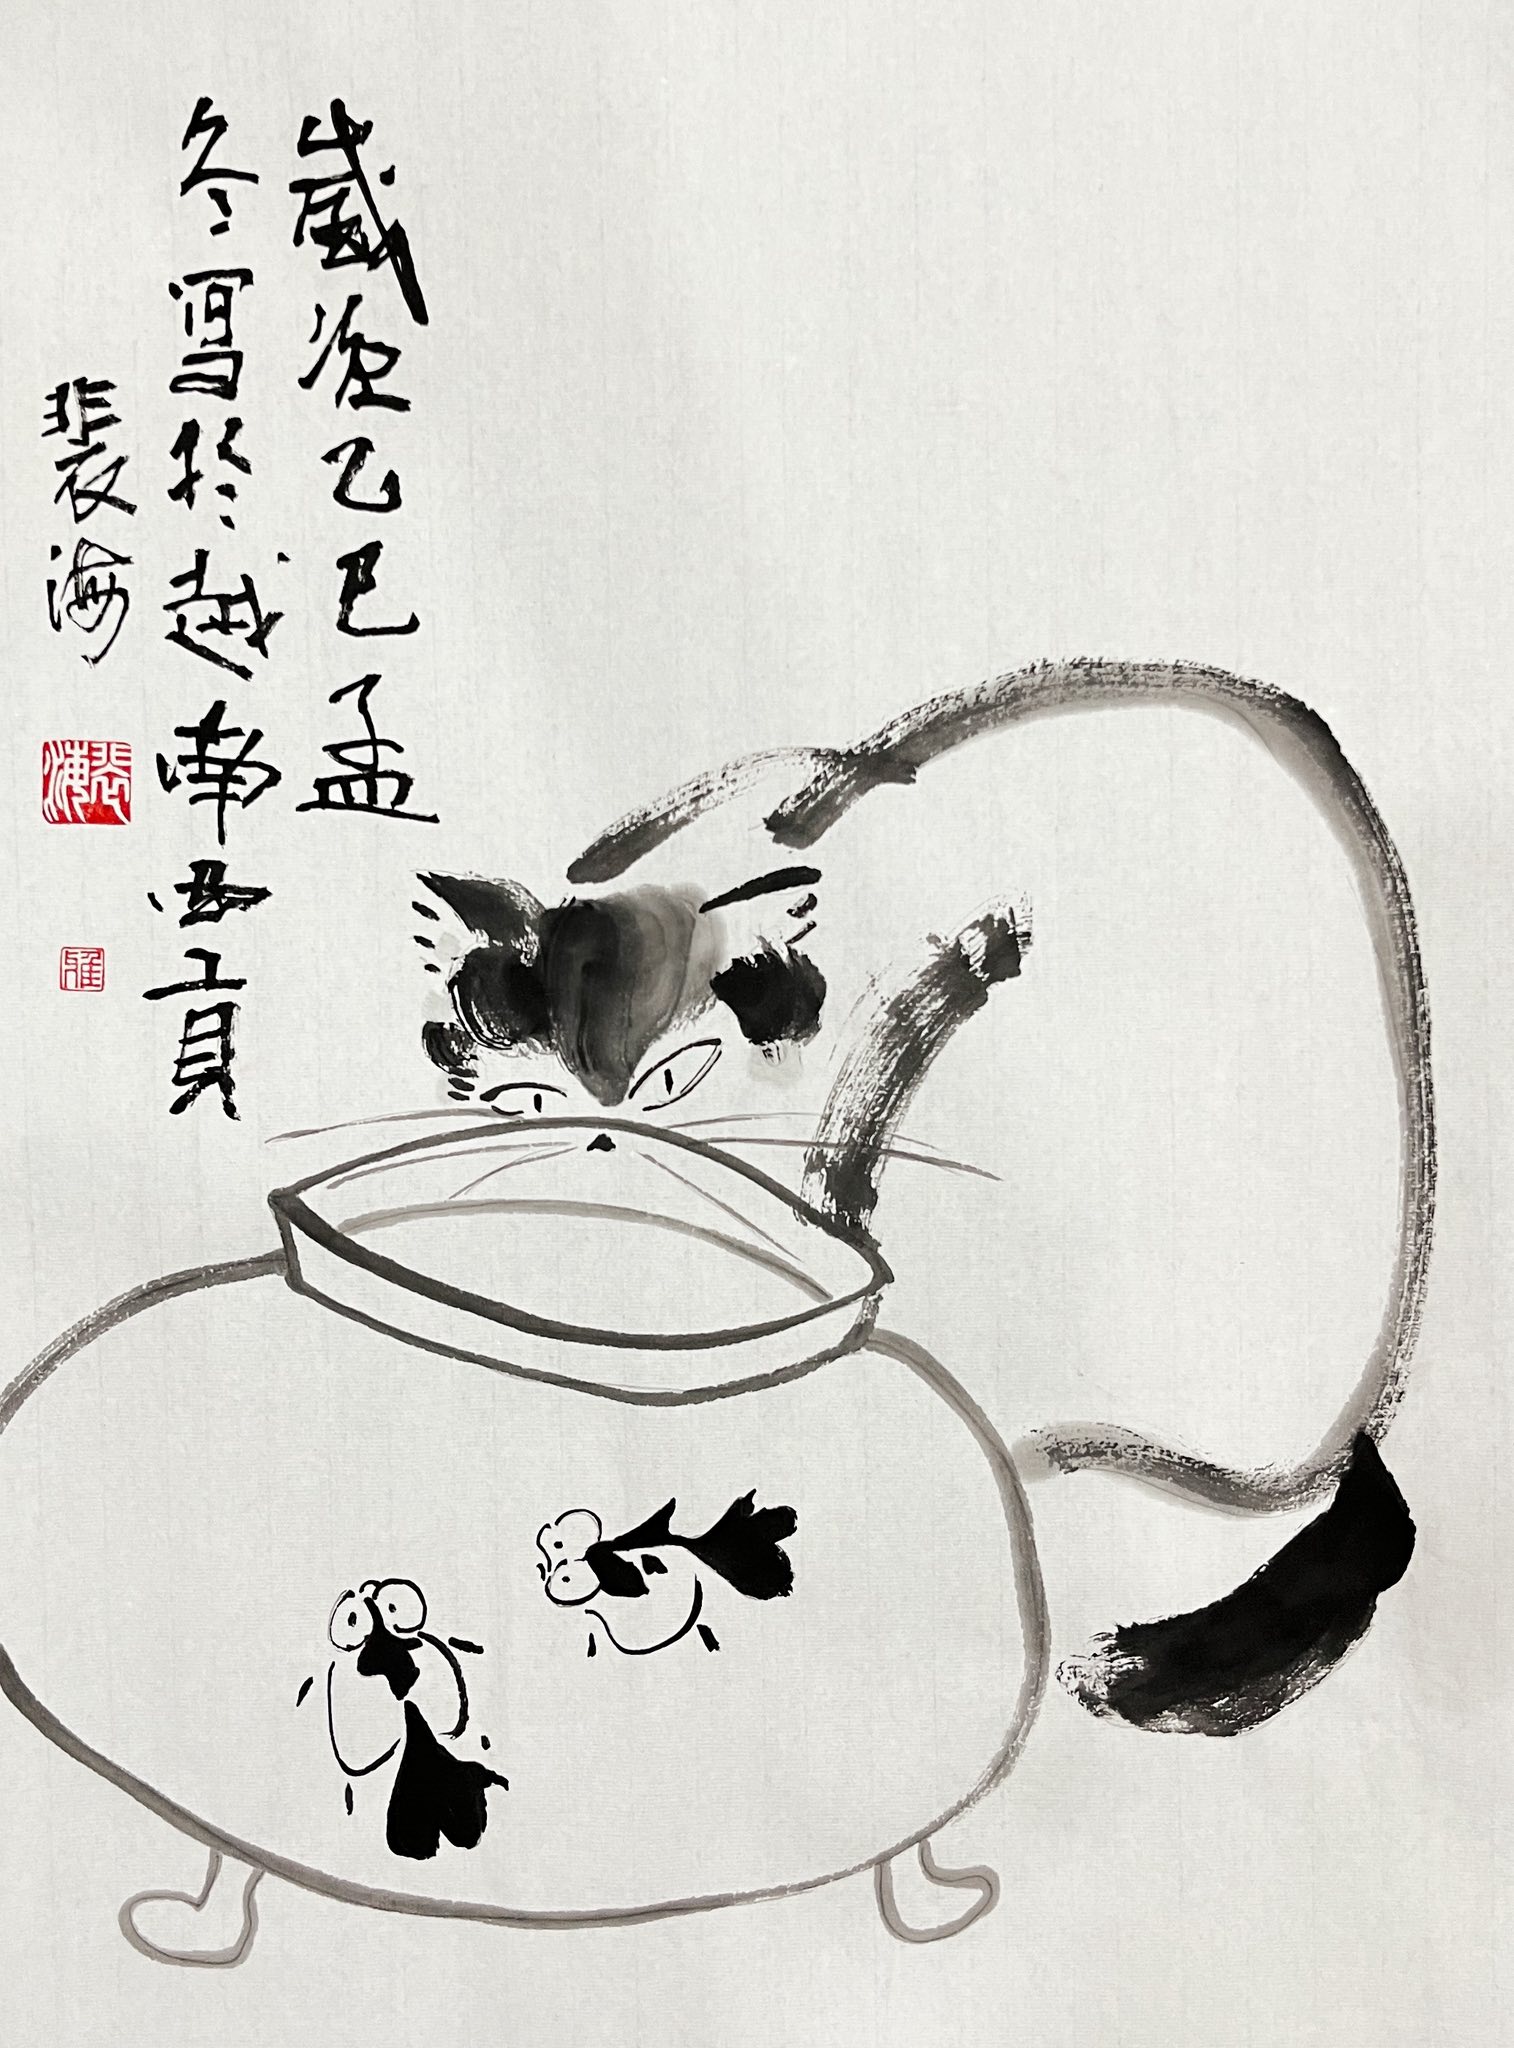 歲值乙巳孟
冬寫於越南西貢
裴海
裴海